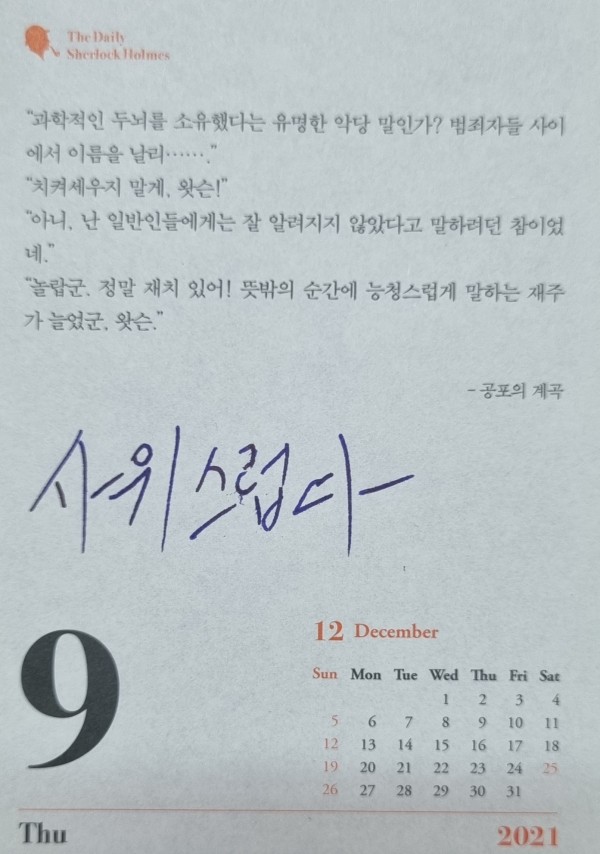 The Daily
Sherlock Holmes
“과학적인 두뇌를 소유했다는 유명한 악당 말인가? 범죄자들 사이
에서 이름을 날리…….”
“치켜세우지 말게, 왓슨!”
“아니, 난 일반인들에게는 잘 알려지지 않았다고 말하려던 참이었
네.”
“놀랍군. 정말 재치 있어! 뜻밖의 순간에 능청스럽게 말하는 재주
가 늘었군, 왓슨.”
- 공포의 계곡
사위스럽다
9
12 December
Sun Mon Tue Wed Thu Fri Sat
1 2 3 4
5 6 7 8 9 10 11
12 13 14 15 16 17 18
19 20 21 22 23 24 25
26 27 28 29 30 31
Thu 2021